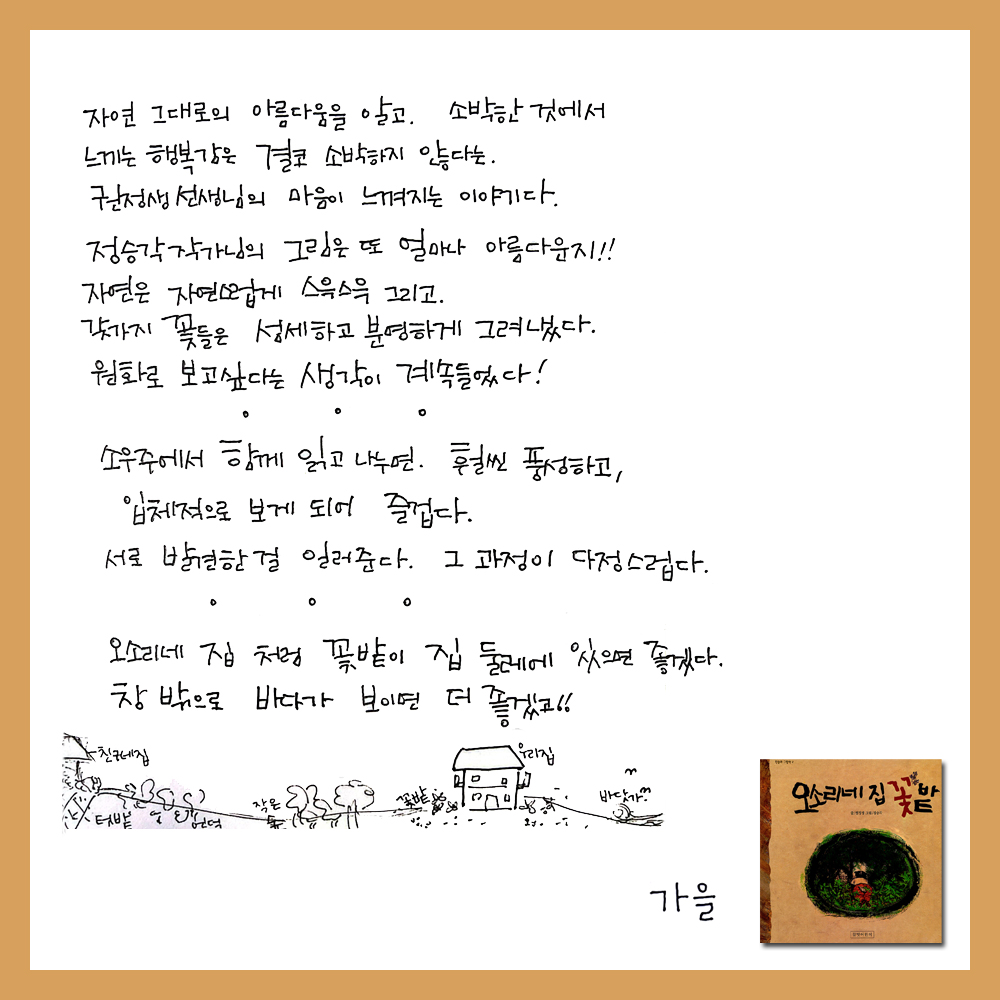 자연 그대로의 아름다움을 알고. 소박한 것에서
느끼는 행복감은 결코 소박하지 않다는.
권정생 선생님의 마음이 느껴지는 이야기다.
정승각 작가님의 그림은 또 얼마나 아름다운지!!
자연은 자연스럽게 스윽스윽 그리고.
갖가지 꽃들은 섬세하고 분명하게 그려냈다.
원화로 보고싶다는 생각이 계속들었다!
소우주에서 함께 읽고 나누면. 훨씬 풍성하고,
입체적으로 보게 되어 즐겁다.
서로 발견한걸 일러준다. 그 과정이 다정스럽다.
오소리네 집 처럼 꽃밭이 집 둘레에 있으면 좋겠다.
창 밖으로 바다가 보이면 더 좋겠고!!
친구네집
우리집
텃밭
언덕
작은
꽃밭
바닷가
가을
오소리네 집 꽃밭